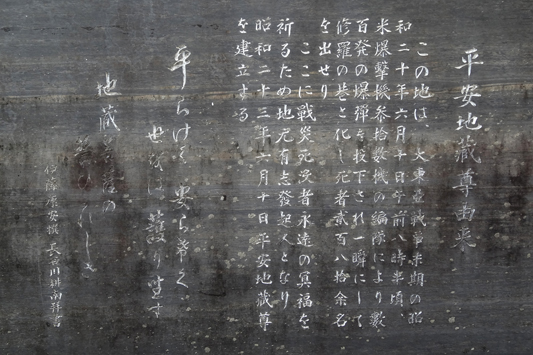 平安地蔵尊由来
この地は、大東亜戦争末期の昭
和二十年六月十日午前八時半頃、
米爆撃機参拾数機の編隊により数
百発の爆弾を投下され一瞬にして
修羅の巷と化し死者貳百八拾余名
を出せり
ここに戦災死没者永遠の冥福を
祈るため地元有志発起人となり
昭和二十三年六月十日平安地蔵尊
を建立する
平らけく安ら希く
世をば護り生す
地蔵